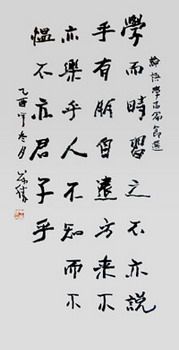 論語學而篇節選
學而時習之不亦説
乎有朋自遠方來不
亦樂乎人不知而不
愠不亦君子乎
乙酉年冬月